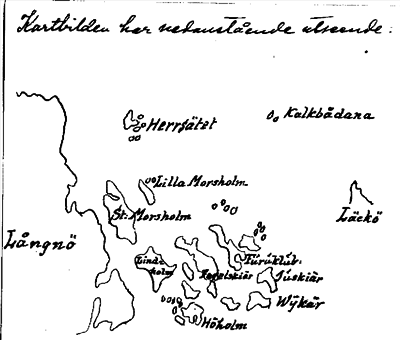 Kartbilden har nedanstående utseende:
Kalkbådana
Herrsätet
Lilla Morsholm
St. Morsholm
Läckö
Långnö
Lindholm
Furuklub.
Kogelskiär
Juskiär
Wykär
Höholm